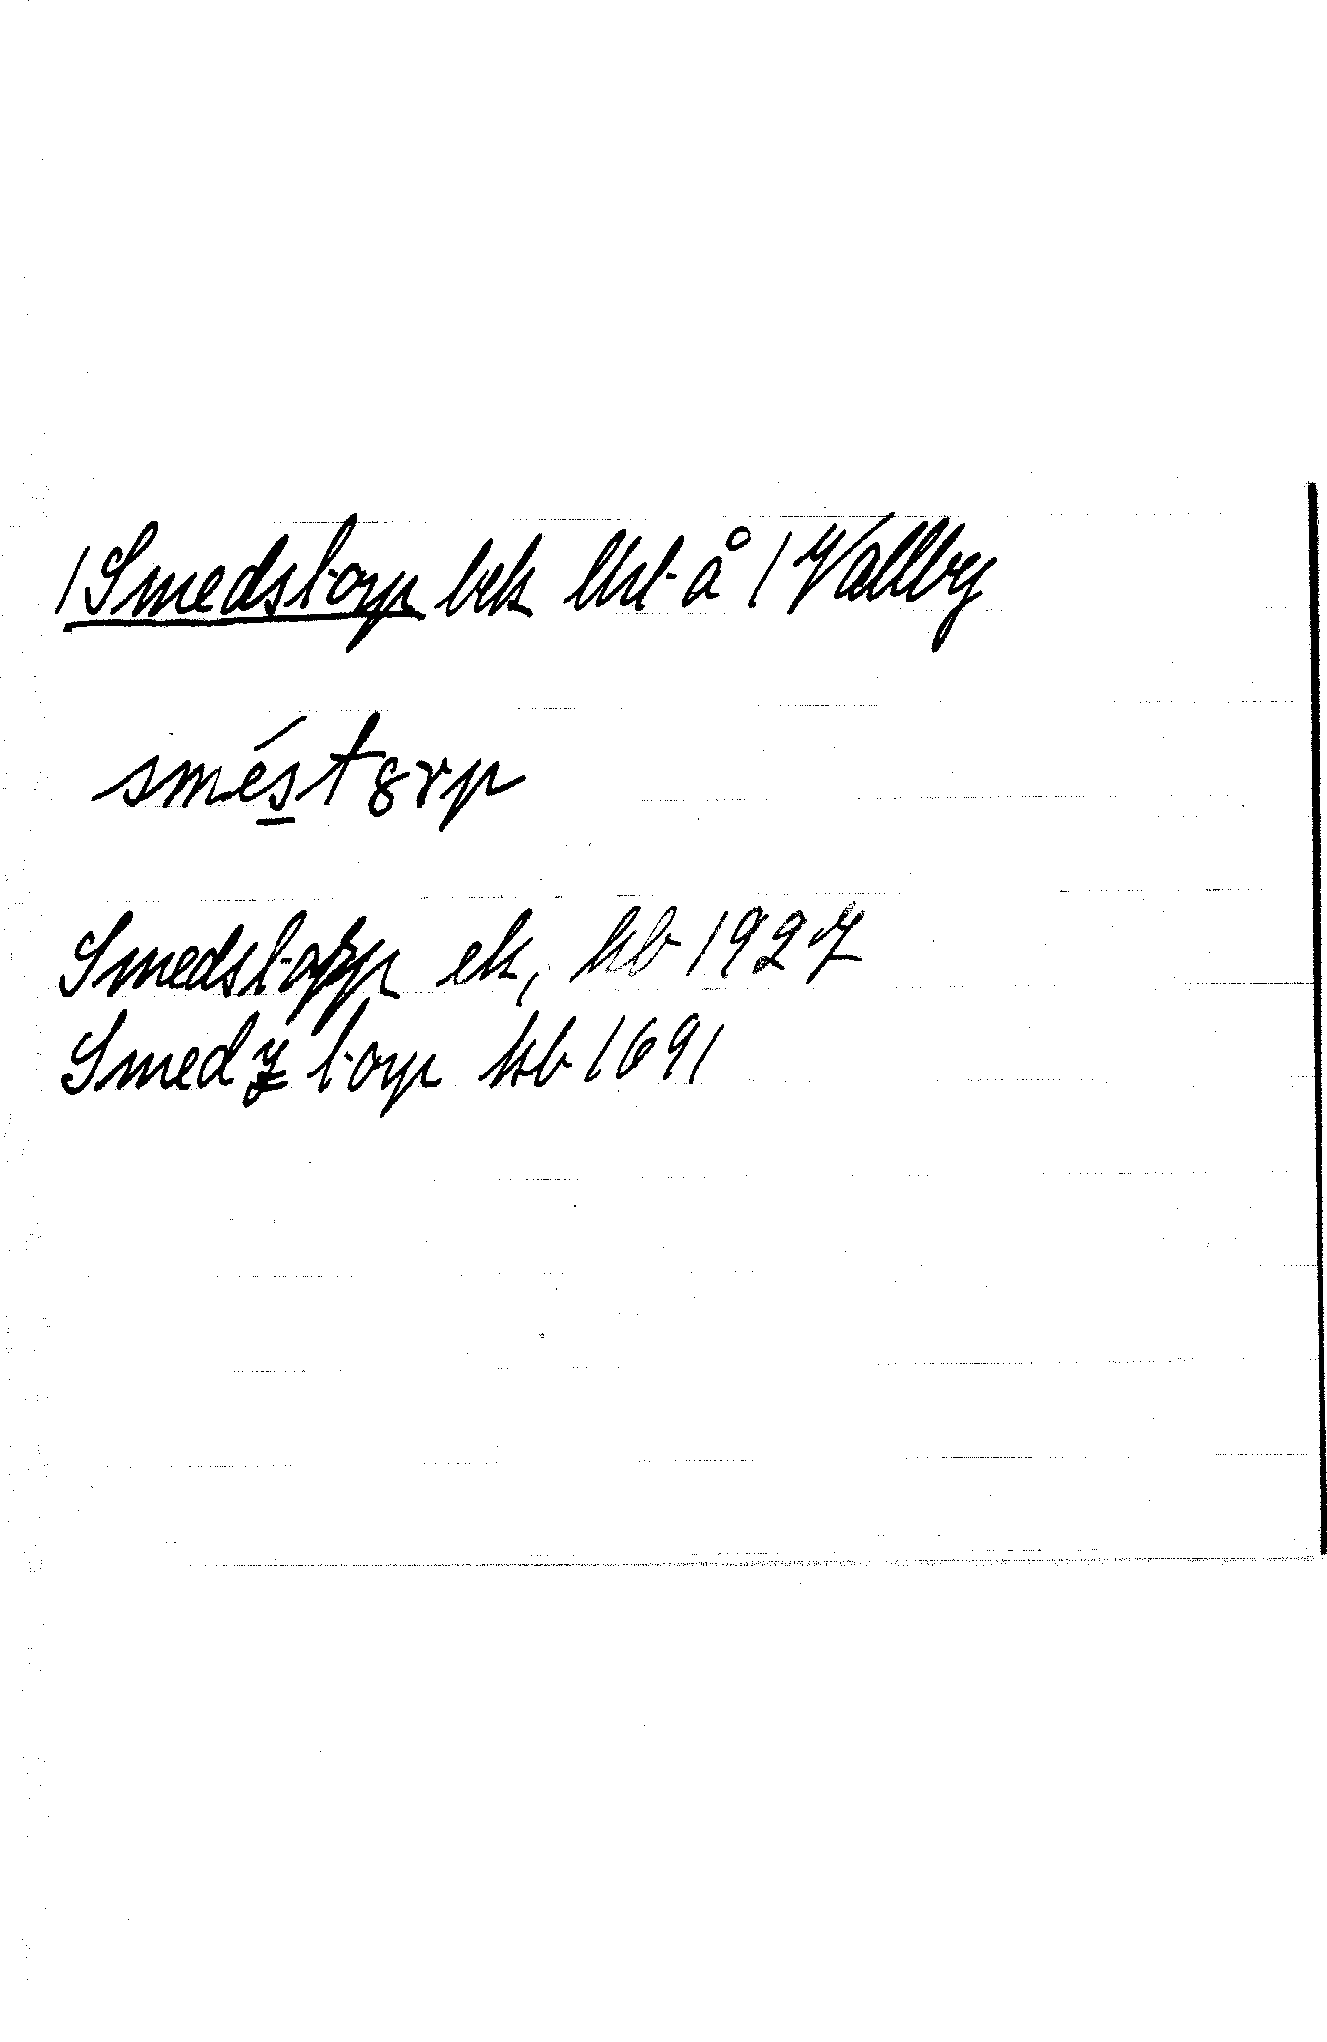 /Smedstorp bek lht å / Vallby
sméstȣrp
Smedstorp ek, kb 1927
SmedZ torp kb 1691